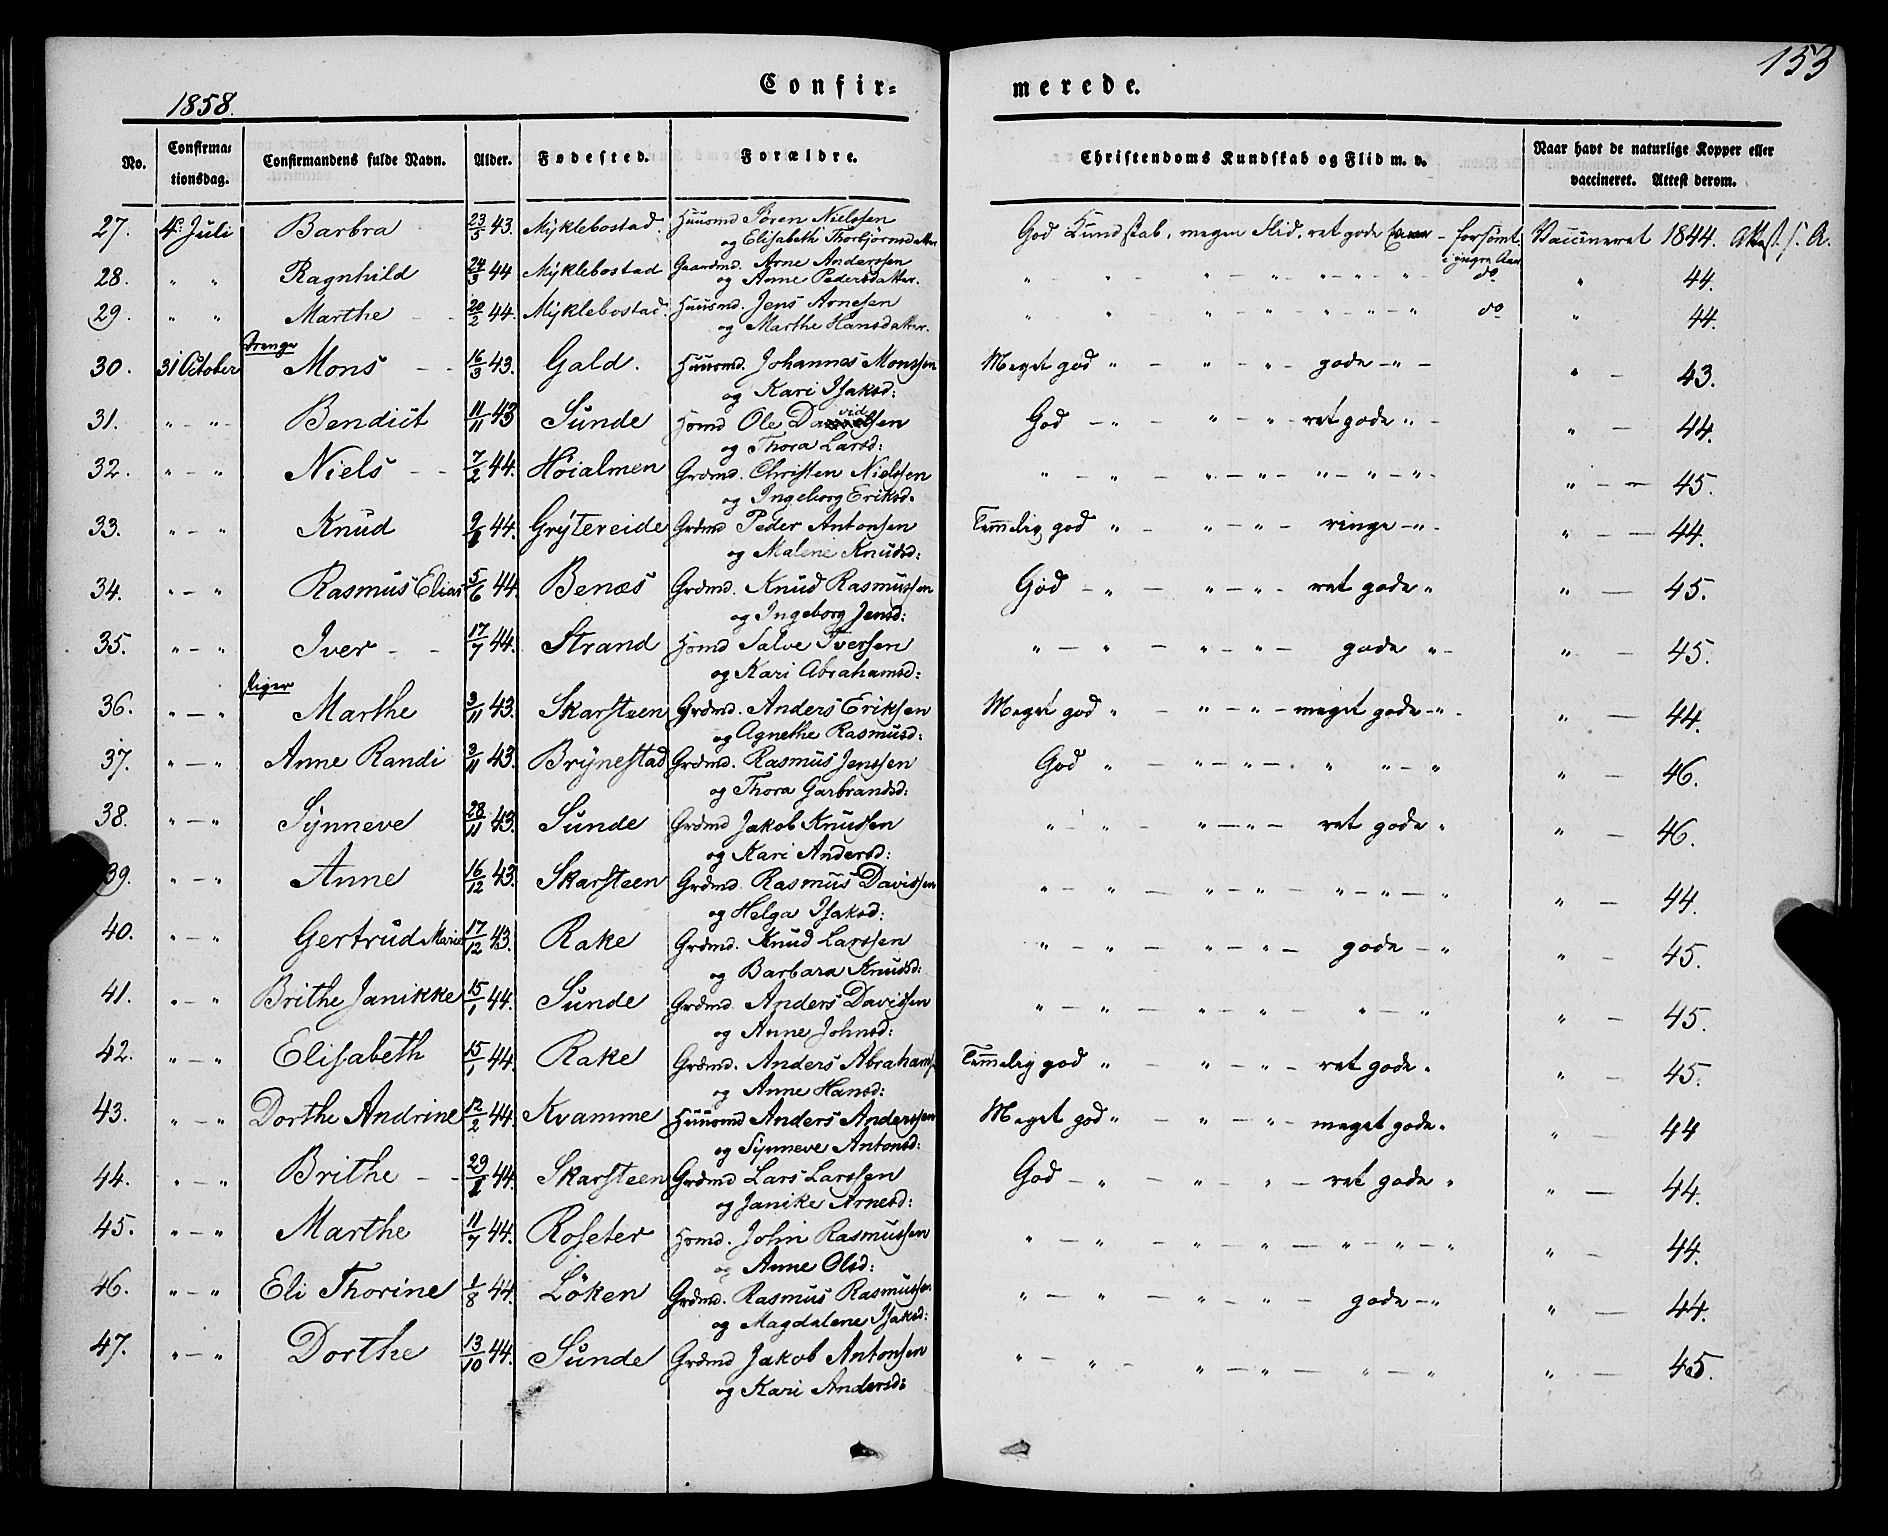 153
1858.
Confir= merede.
No. Confirma- tionsdag. Confirmandens fulde Navn. Alder. Fødested. Forældre. Christendoms Kundskab og Flid m. v. Naar havt de naturlige Kopper eller vaccineret. Attest derom.
27. 4de Juli Barbra 23/5 43. Myklebostad. Huusmd Sören Nielssen God Kundskab, megen Flid, ret gode - forsömt Vaccineret 1844.
og Elisabeth Thorbjörnsdatter i yngre Aar
28. " " Ragnhild 24/3 44 Myklebostad Gaardmd. Arne Anderssen " " " - " - " - " - " do " 44.
og Anne Pedersdatter.
29. " " Marthe - - 20/2 44. Myklebostad. Huusmd. Jens Arnesen " " " - " - " - " - " do " 44.
og Marthe Hansdatter.
Drenge
30. 31 October Mons - - 16/3 43. Gald. Huusmd. Johannes Monssen Meget god " - " - " - gode - " - " - 43.
og Kari Isaksd:
31. " - " - Bendict 11/11 43 Sunde Hsmd Ole Davidsen God - " - " - " - ret gode " - " - 44.
og Thora Larsd:
32. " - " Niels - - 7/2 44. Höialmen Grdmd. Christen Nielssen " - " - " - " - " - " - " - " - - 45.
og Ingeborg Eriksd.
33. " - " Knud 9/1 44. Grytereide Grdmd Peder Antonsen Temmelig god " - " - " - ringe - " - " - - 44.
og Malene Knudsd:
34. " - " Rasmus Elias 5/6 44. Benæs Grdmd. Knud Rasmussen God - " - " - " - ret gode " " - 45.
og Ingeborg Jensd:
35. " - " Iver - - 17/7 44. Strand Hsmd Salve Iversen " - " - " - " - gode " - " - 45.
og Kari Abrahamsd:
Piger
36. " - " Marthe 3/11 43. Skarsteen Grdmd. Anders Eriksen Meget god " - " - " - meget gode - " - " - 44.
og Agnethe Rasmusd:
37. " - " Anne Randi 3/11 43. Brynestad Grdmd. Rasmus Jenssen God " - " - " - " " - " " - 46.
og Thora Garbrandsd:
38. " - " Synneve 28/11 43. Sunde Grdmd Jakob Knudsen " - " - " - " - ret gode " " - 46.
og Kari Andersd:
39. " - " Anne 16/12 43. Skarsteen Grdmd. Rasmus Davidsen " - " - " - " - " - " - " " - 44.
og Helga Isaksd:
40. " - " Gertrud Marie 17/12 43. Rake Grdmd. Knud Larssen " - " - " - " - gode - " " - 45.
og Barbara Knudsd:
41. " - " Brithe Janikke 15/1 44. Sunde Grdmd. Anders Davidsen " - " - " - " - " - " " - 45.
og Anne Johnsd:
42. " - " Elisabeth 15/1 44. Rake Grdmd. Anders Abrahams. Temmelig god " - " - " - ret gode " " - 45.
og Anne Hansd:
43. " - " Dorthe Andrine 12/2 44. Kvamme Huusmd Anders Anderssen Meget god " - " - " - meget gode " " - 44
og Synneve Antonsd:
44. " - " Brithe - - 29/1 44. Skarsteen Grdmd Lars Larssen God - " - " - " - ret gode " " - 44.
og Janike Arnesd:
45. " - " Marthe 11/7 44. Roseter Hsmd. John Rasmussen " - " - " - " - " - " - " " - 44.
og Anne Olsd:
46. " - " Eli Thorine 1/8 44. Löken Grdmd. Rasmus Rasmussen " - " - " - " - gode - " " - 44.
og Magdalene Isaksd:
47. " - " Dorthe 13/10 44. Sunde Grdmd Jakob Antonsen " - " - " - " - " - " " - 45.
og Kari Andersd: